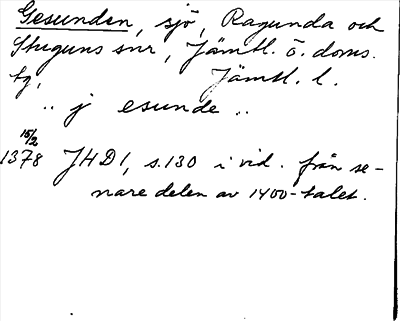 Gesunden, sjö, Ragunda och
Stuguns snr, Jämtl. ö. doms.
tg, Jämtl. l.
.. j esunde ..
15/2
1378 JHD 1, s. 130 i vid. från se-
nare delen av 1400-talet.